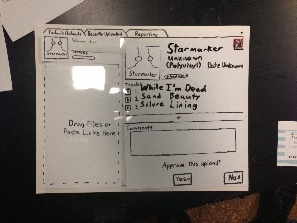 Recently Uploaded
Reporting
Starmarker
Unknown
(Polyvinyl) Date Unknown
Starmarker
Tracks
1 While I'm Dead
2 Sand Beauty
3 Silure Lining
Drag Files or
Paste Links Here!
Comments
Approve this upload?
Yes
No